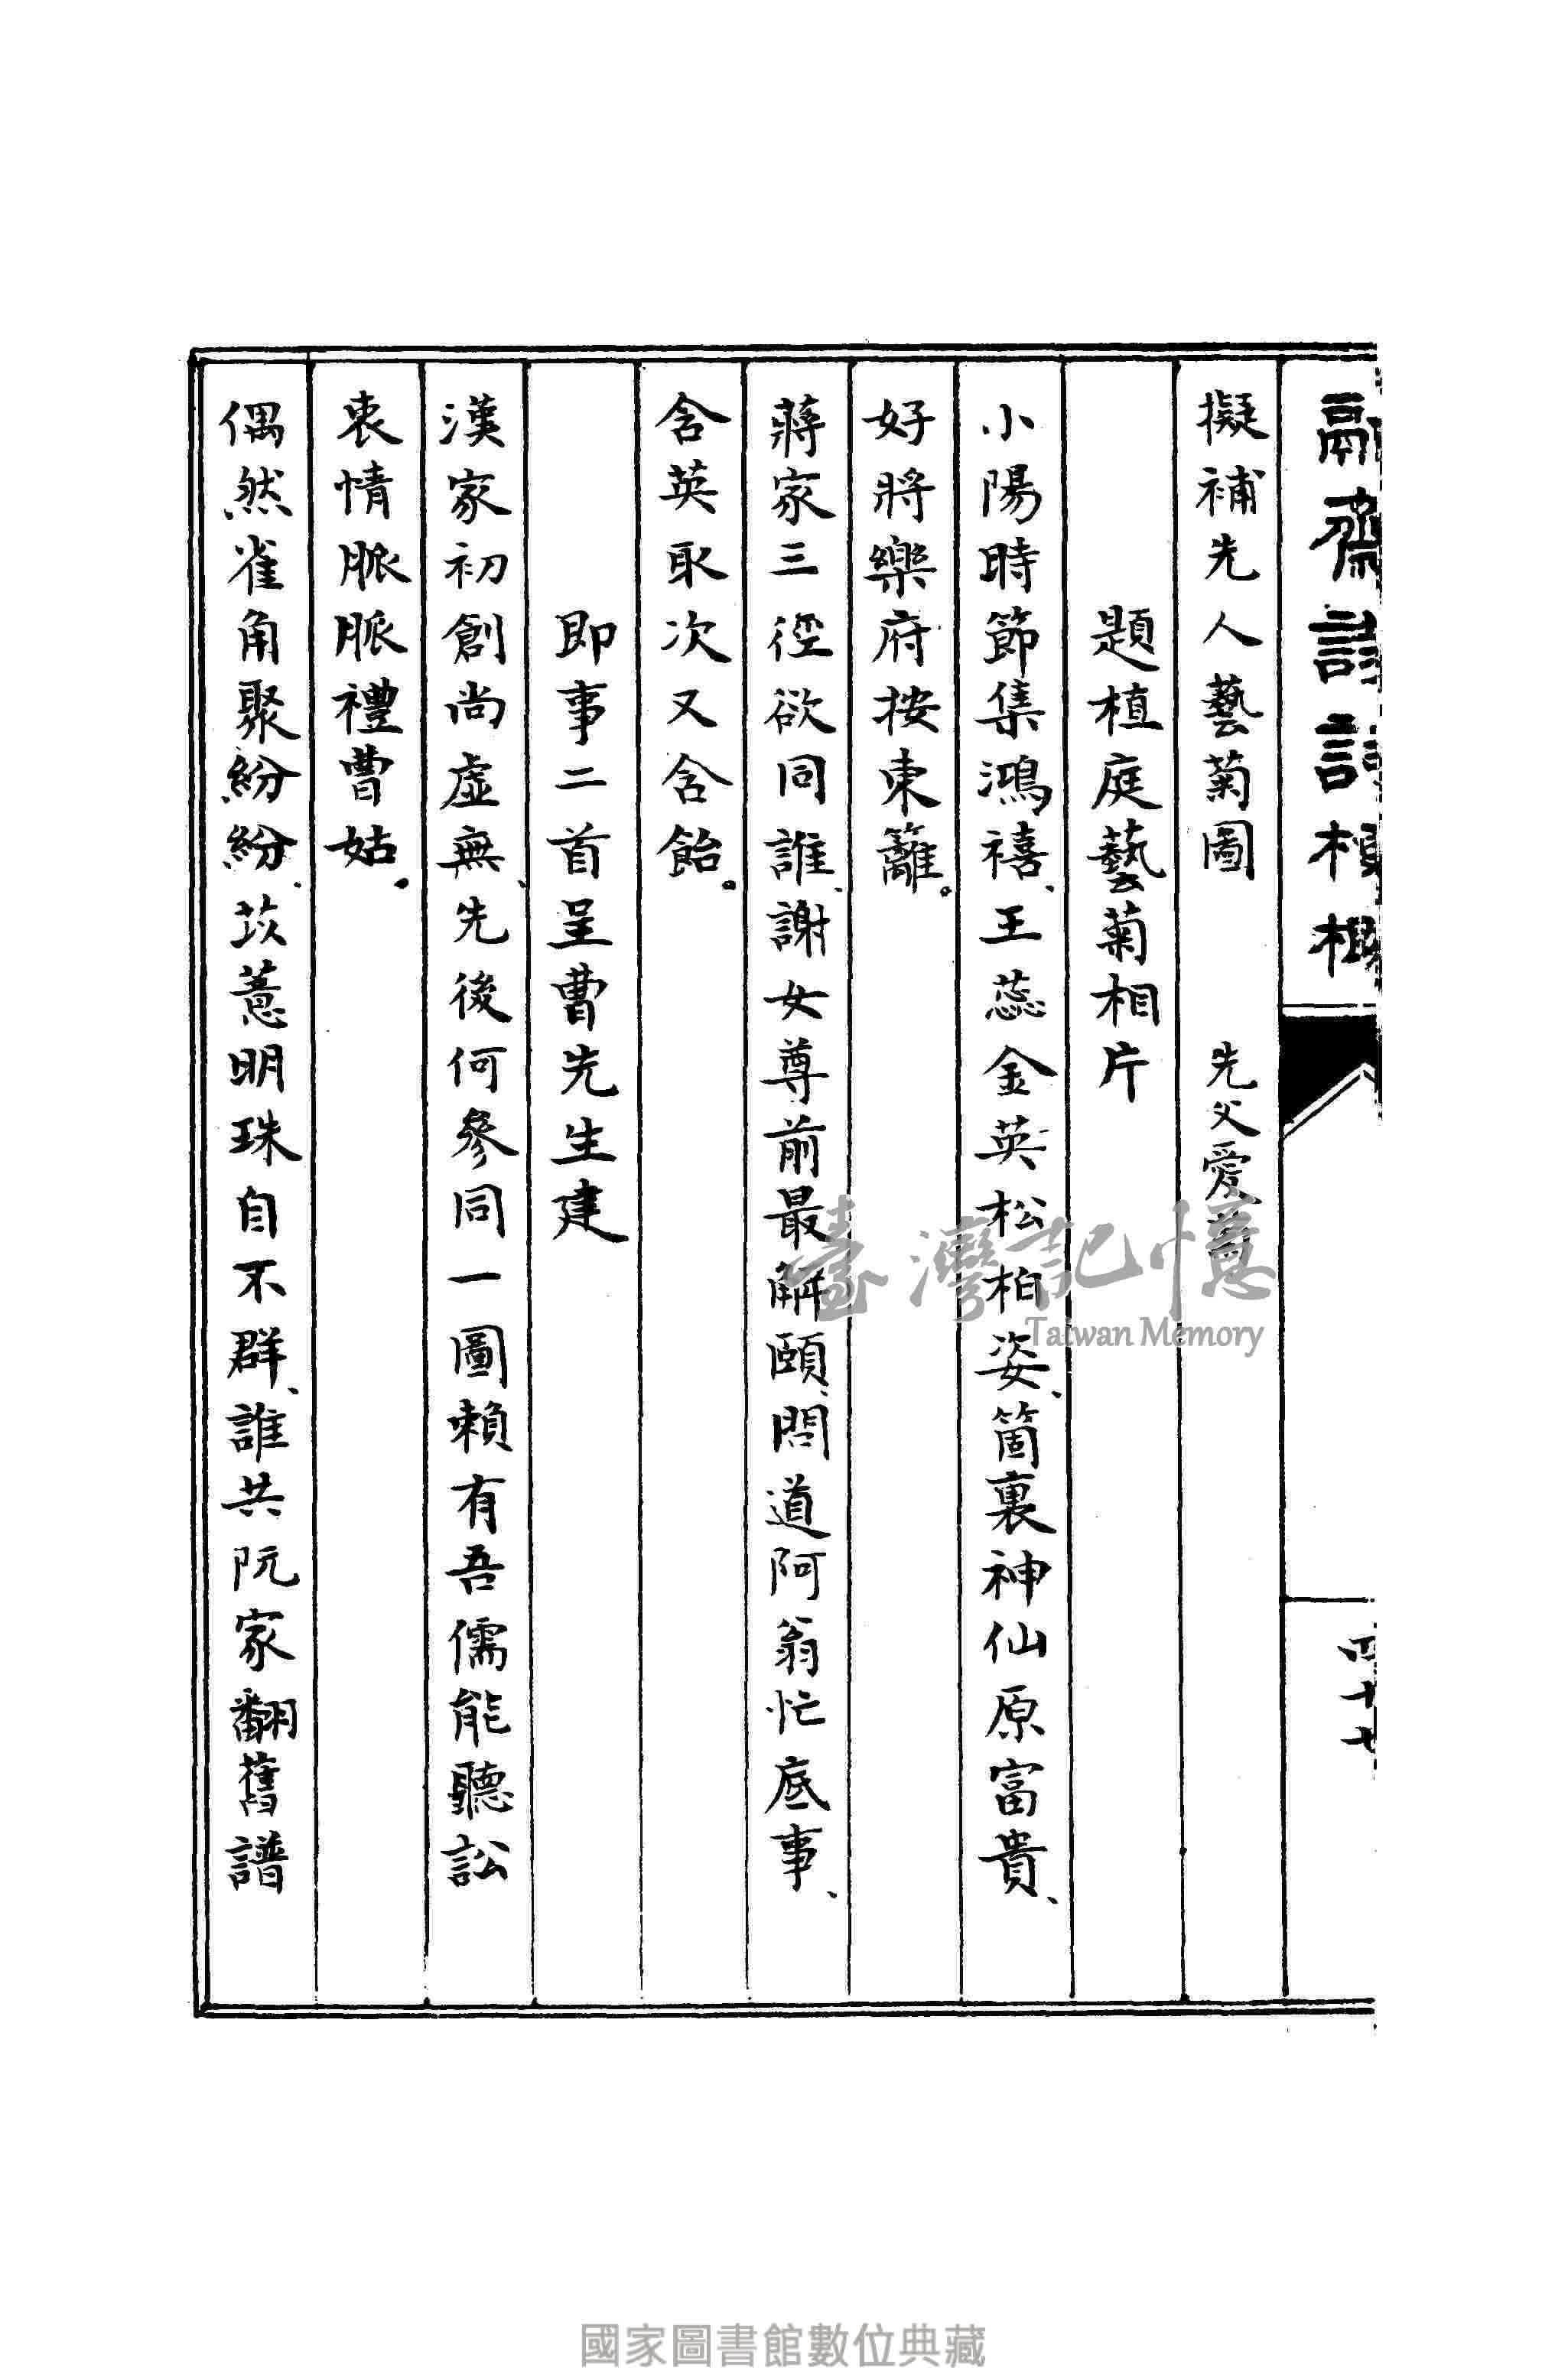 齋詩
四十七
擬補先人藝菊圖 先父愛菊
題植庭藝菊相片
小陽時節集鴻禧、王蕊金英松柏姿、箇裏神仙原富貴、
好將樂府按東籬。
蔣家三徑欲同誰、謝女尊前最解頤、問道阿翁忙底事、
含英取次又含飴。
即事二首呈曹先生建
漢家初創尚虛無、先後何參同一圖賴有吾儒能聽訟
衷情脈脈禮曹姑。
偶然雀角聚紛紛、苡薏明珠自不群、誰共阮家翻舊譜
臺灣記憶
Taiwan Memory
國家圖書館數位典藏